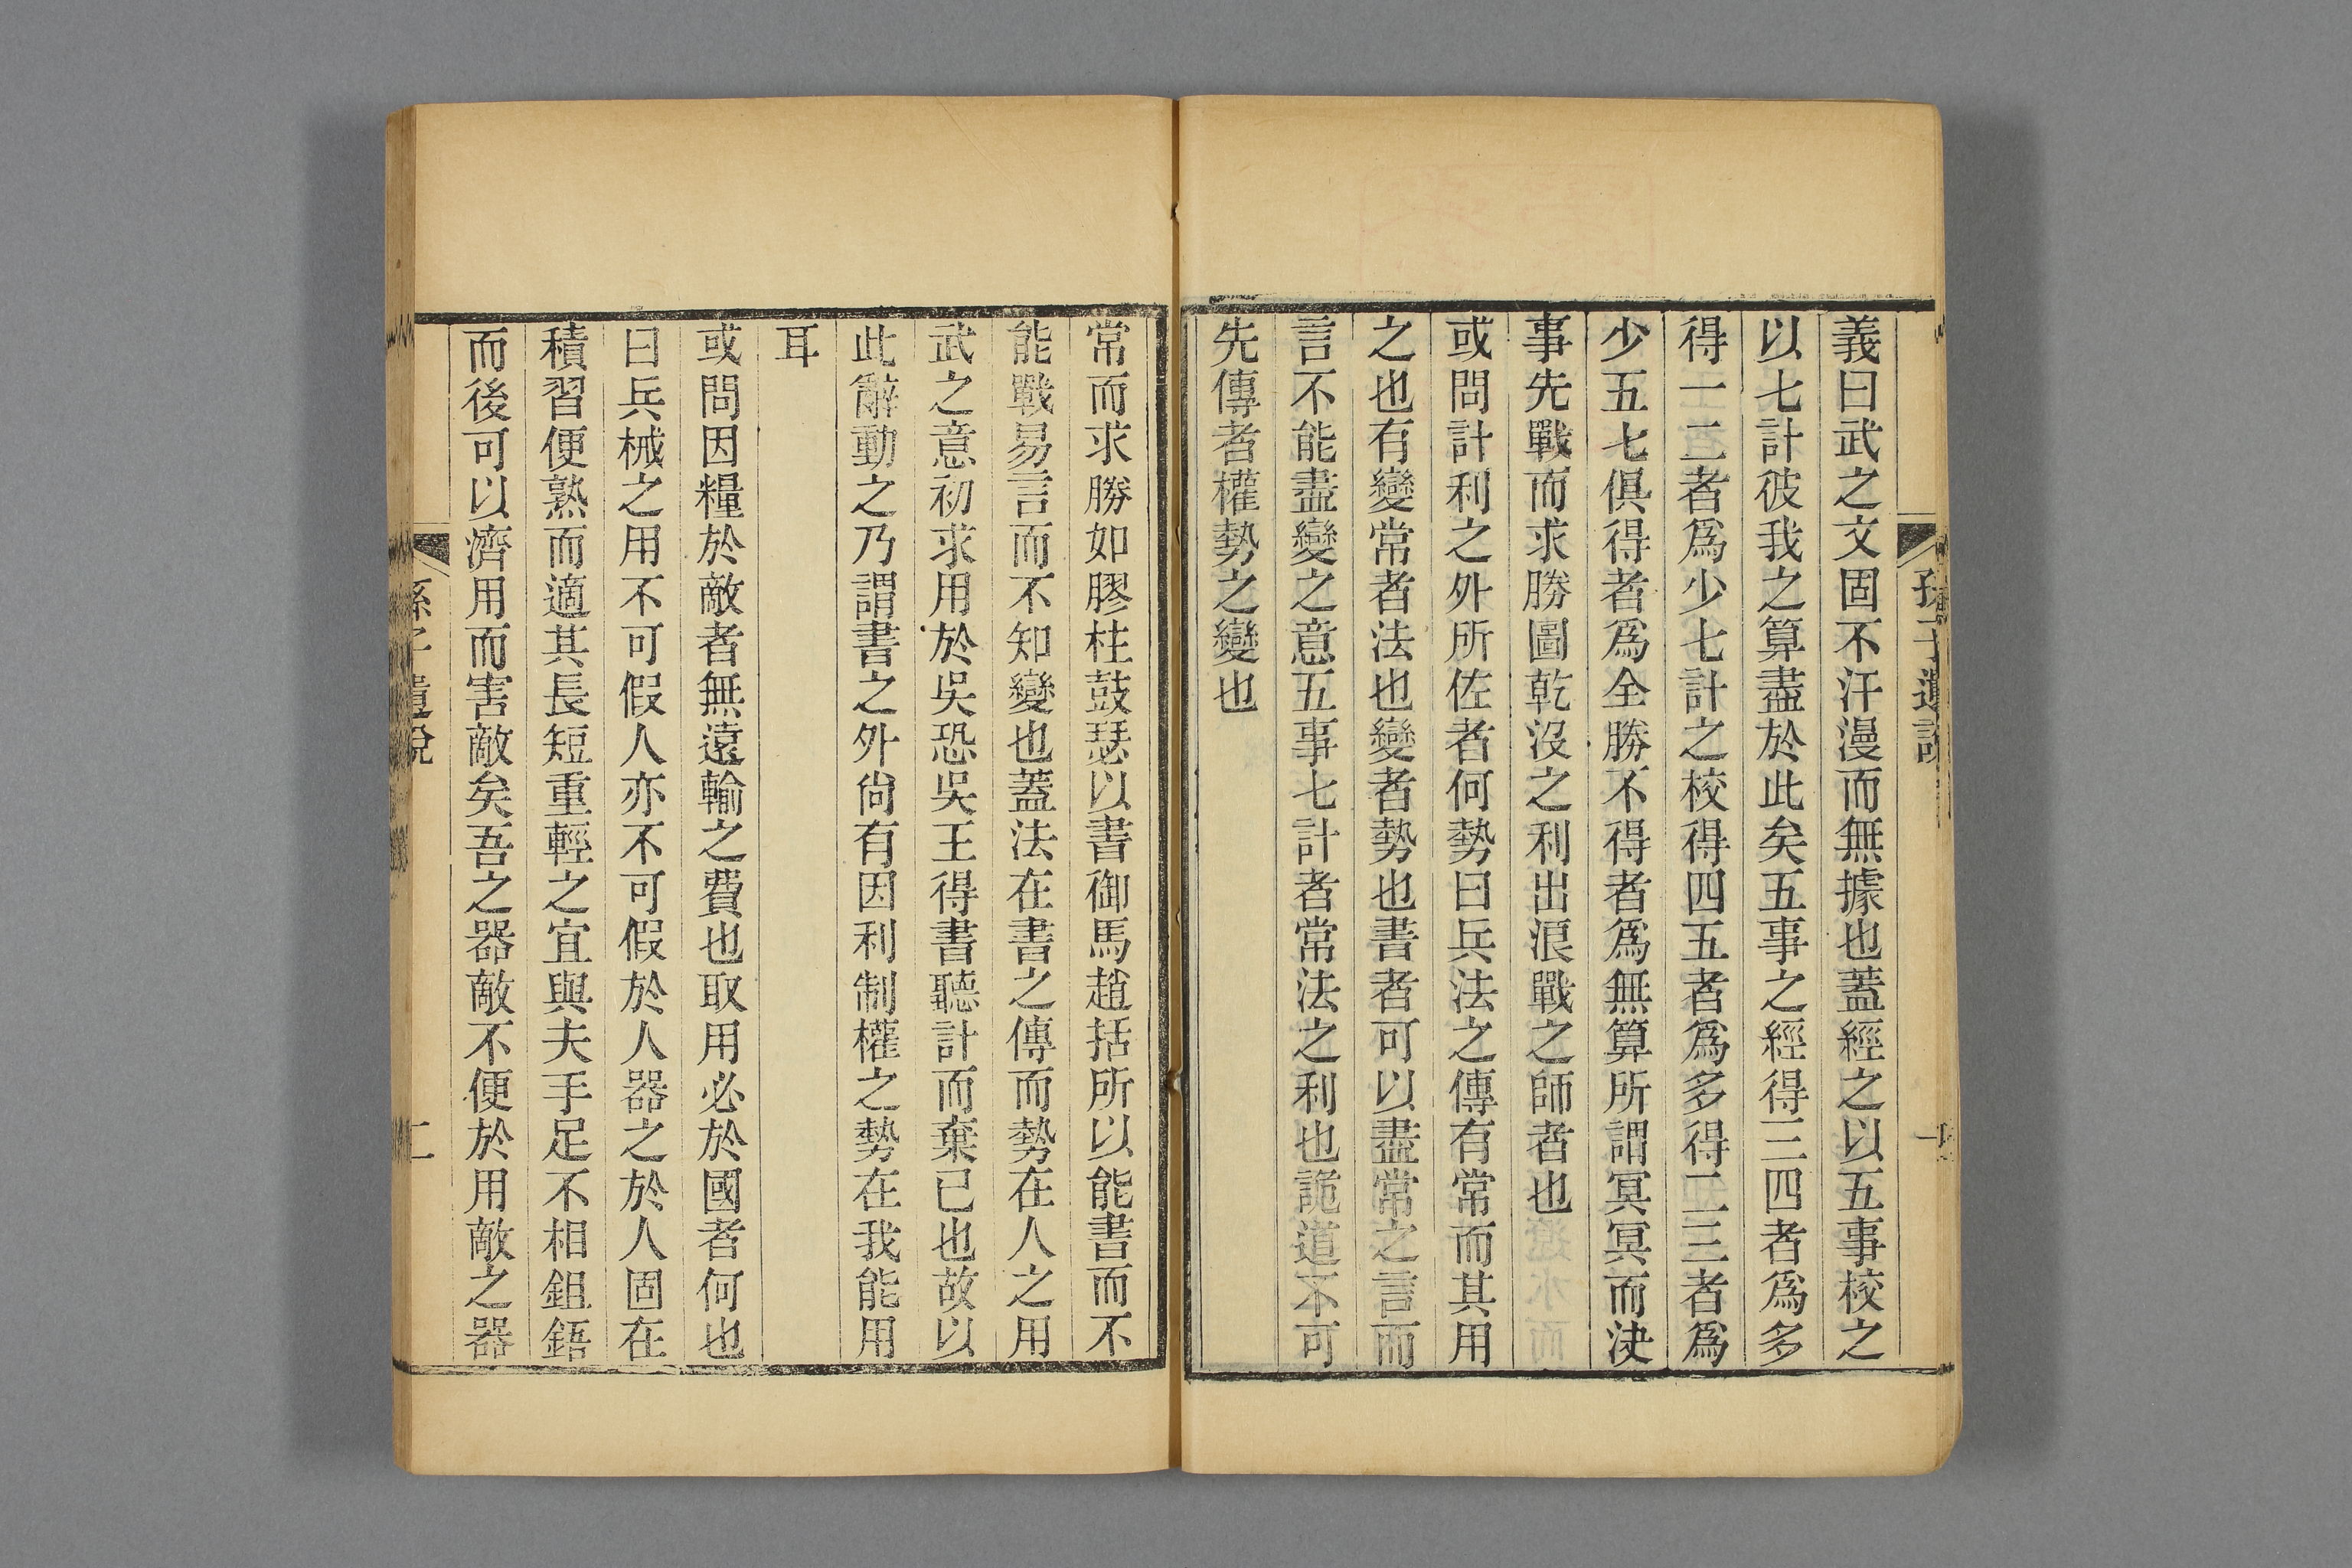 孫子遺說
一
義曰武之文固不汗漫而無據也蓋經之以五事校之
以七計彼我之算盡於此矣五事之經得三四者爲多
得一二者爲少七計之校得四五者爲多得二三者爲
少五七俱得者爲全勝不得者爲無算所謂冥冥而決
事先戰而求勝圖乾沒之利出浪戰之師者也
或問計利之外所佐者何勢曰兵法之傳有常而其用
之也有變常者法也變者勢也書者可以盡常之言而
言不能盡變之意五事七計者常法之利也詭道不可
先傳者權勢之變也
常而求勝如膠柱鼓瑟以書御馬趙括所以能書而不
能戰易言而不知變也蓋法在書之傳而勢在人之用
武之意初求用於吳恐吳王得書聽計而棄己也故以
此辭動之乃謂書之外尙有因利制權之勢在我能用
耳
或問因糧於敵者無遠輸之費也取用必於國者何也
曰兵械之用不可假人亦不可假於人器之於人固在
積習便熟而適其長短重輕之宜與夫手足不相鉏鋙
而後可以濟用而害敵矣吾之器敵不便於用敵之器
孫子遺說
二